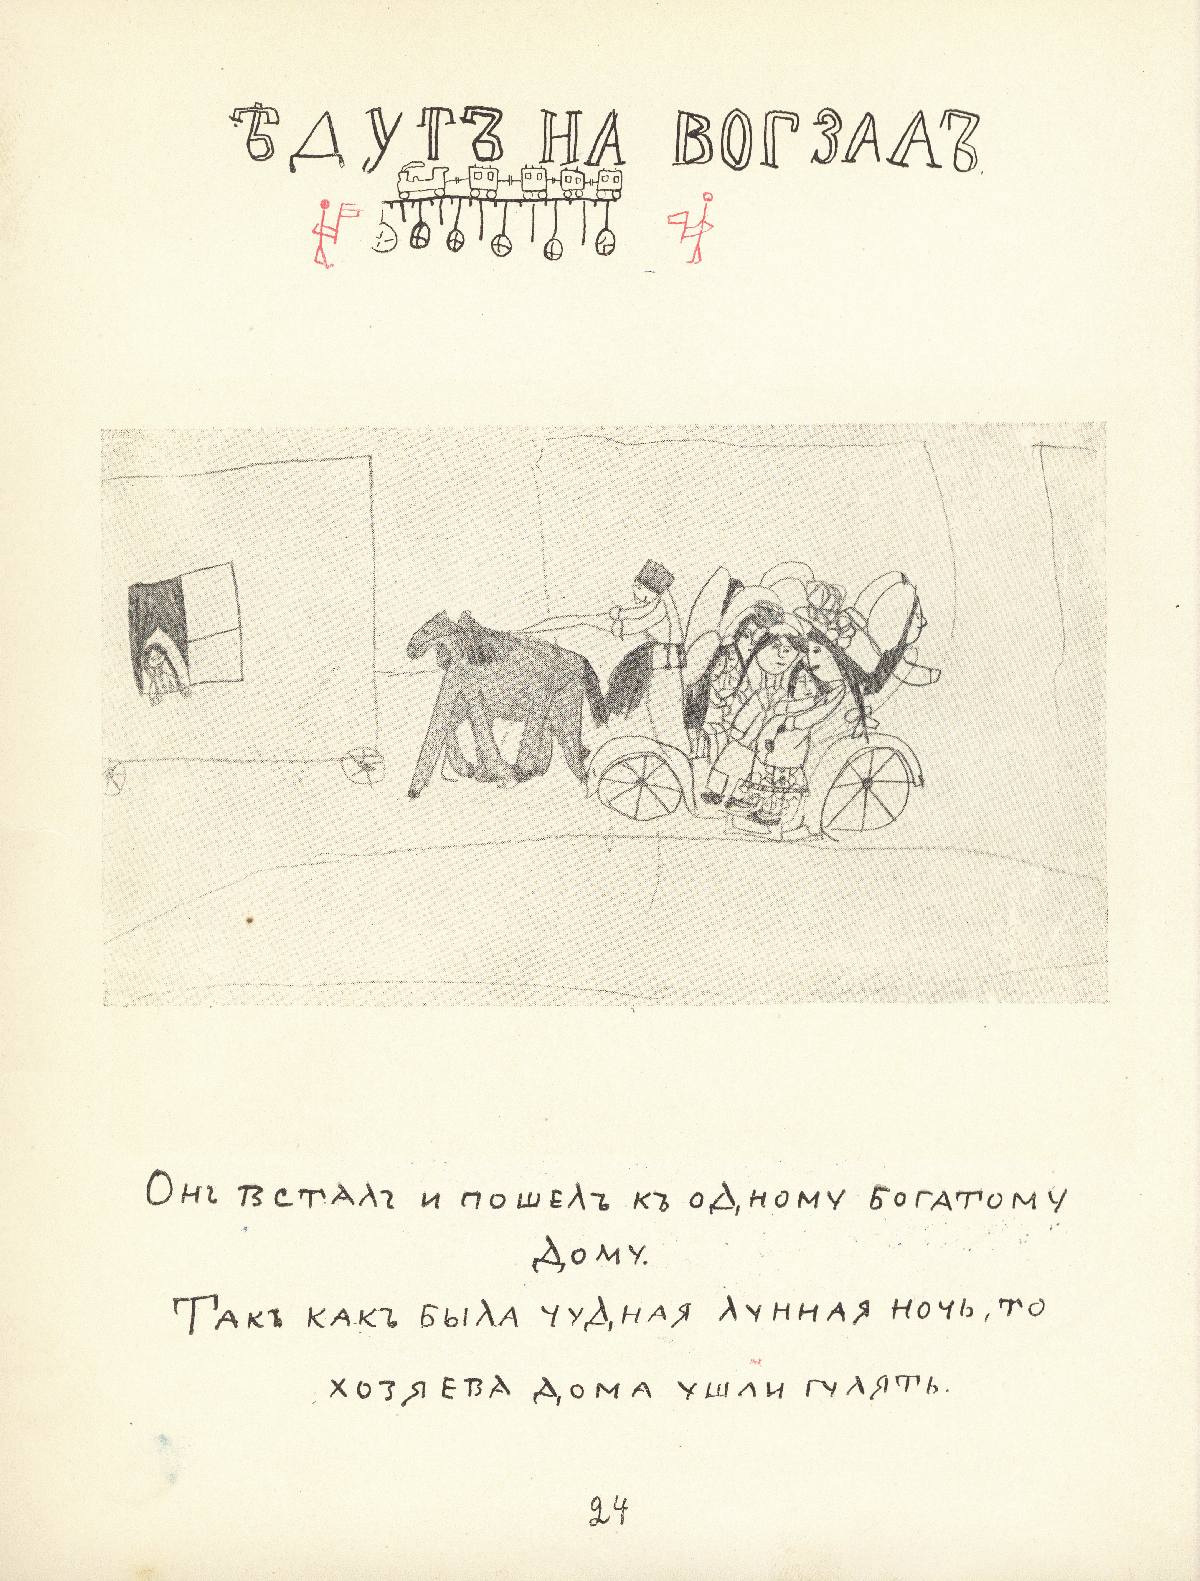 ѢДУТЪ НА ВОГЗАЛЪ
Онъ всталъ и пошелъ къ одному богатому
дому.
Такъ какъ была чудная лунная ночь, то
хозяева дома ушли гулять.
24